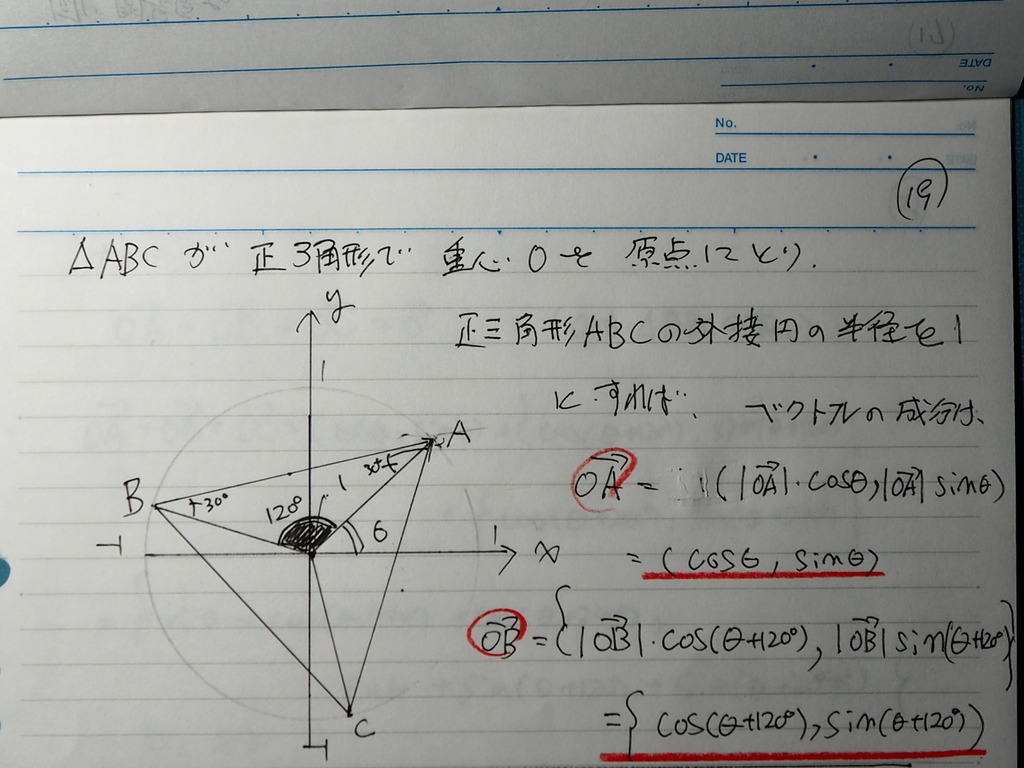 No.
DATE
⑲
△ABCが 正3角形で 重心Oを 原点にとり.
正三角形ABCの外接円の半径を1
にすれば、 ベクトルの成分は、
y
1
A
30°
B
30°
120°
1
θ
-1
1
x
C
-1
OA→ = (|OA→|・cosθ, |OA→| sinθ)
= (cosθ, sinθ)
OB→ = {|OB→|・cos(θ+120°), |OB→| sin(θ+120°)}
={ cos(θ+120°), sin(θ+120°)}